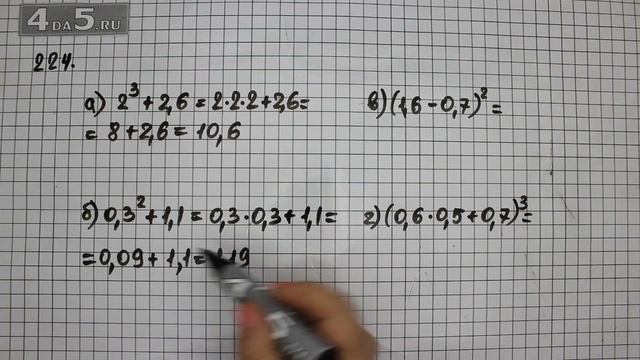 4DA5.RU
224.
а) 2³ + 2,6 = 2·2·2 + 2,6 =
= 8 + 2,6 = 10,6
б) 0,3² + 1,1 = 0,3·0,3 + 1,1 =
= 0,09 + 1,1 = 1,19
в) (1,6 - 0,7)² =
г) (0,6·0,5 + 0,7)³ =